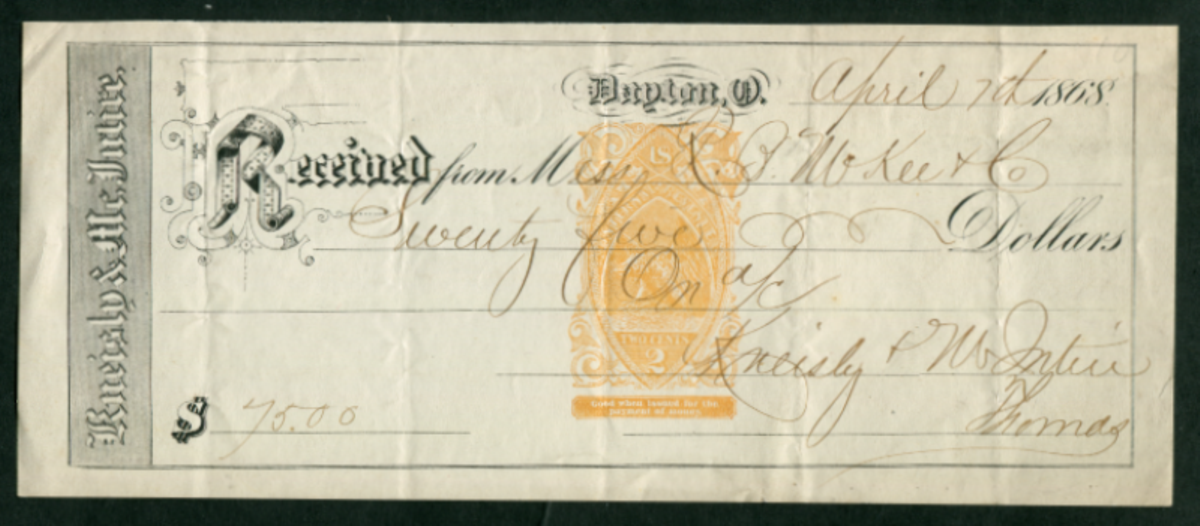 Kneisly & Mc.Intire,
Dayton, O. April 7th 1868.
Received from Mess R. P. McKee & Co
Seventy five Dollars
On a/c
U S
TWO CENTS
2
Kneisly & McIntire
Good when issued for the
payment of money
$ 75.00
Thomas